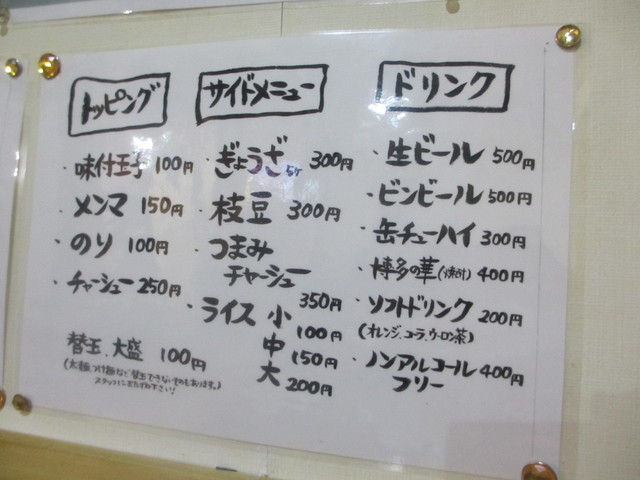 トッピング
・味付玉子 100円
・メンマ 150円
・のり 100円
・チャーシュー 250円
替玉、大盛 100円
(太麺、つけ麺など替玉できないものもあります。)
スタッフにおたずね下さい!
サイドメニュー
・ぎょうざ 5ケ 300円
・枝豆 300円
・つまみ
チャーシュー
350円
・ライス 小 100円
中 150円
大 200円
ドリンク
・生ビール 500円
・ビンビール 500円
・缶チューハイ 300円
・博多の華(焼酎) 400円
・ソフトドリンク 200円
(オレンジ、コーラ、ウーロン茶)
・ノンアルコール 400円
フリー